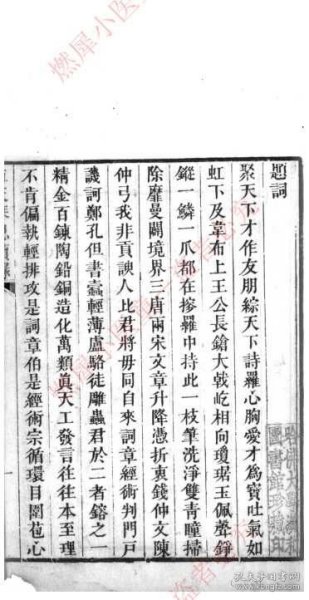 題詞
聚天下才作友朋綜天下詩羅心胸愛才為寶吐氣如
虹下及韋布上王公長鎗大戟屹相向瓊琚玉佩聲錚
鏦一鱗一爪都在掺羅中持此一枝筆洗淨雙青瞳掃
除靡曼闢境界三唐兩宋文章升降憑折衷錢仲文陳
仲弓我非貢諛人比君將毋同自來詞章經術判門戶
譏訶鄭孔但書蠹輕薄盧駱徒雕蟲君於二者鎔之一
精金百鍊陶鉛銅造化萬類真天工發言往往本至理
不肯偏執輕排攻是詞章伯是經術宗循環目圍苞心
一
燃犀小医